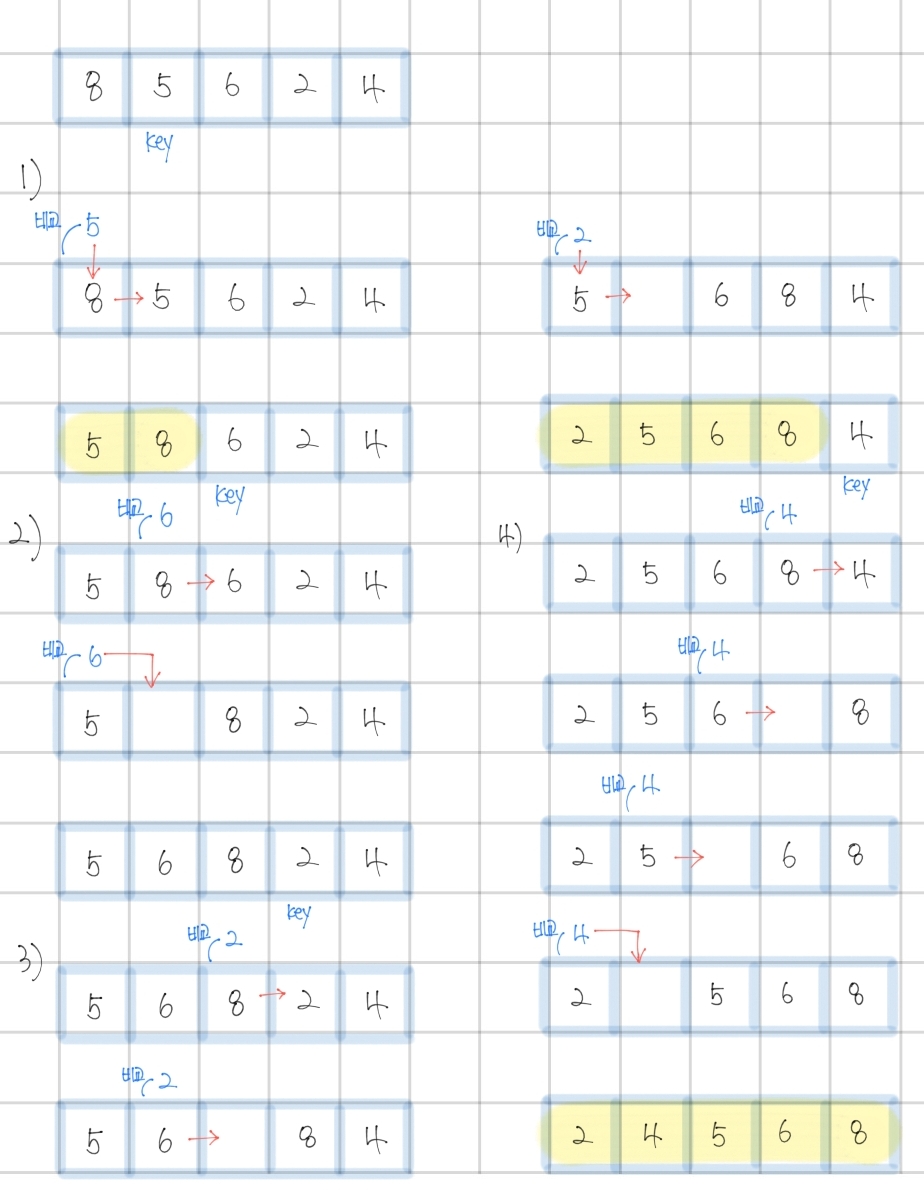 8 5 6 2 4
key
1)
비교 5
8 → 5 6 2 4
5 8 6 2 4
key
2)
비교 6
5 8 → 6 2 4
비교 6
5 8 2 4
5 6 8 2 4
key
3)
비교 2
5 6 8 → 2 4
비교 2
5 6 → 8 4
비교 2
5 → 6 8 4
2 5 6 8 4
key
4)
비교 4
2 5 6 8 → 4
비교 4
2 5 6 → 8
비교 4
2 5 → 6 8
비교 4
2 5 6 8
2 4 5 6 8